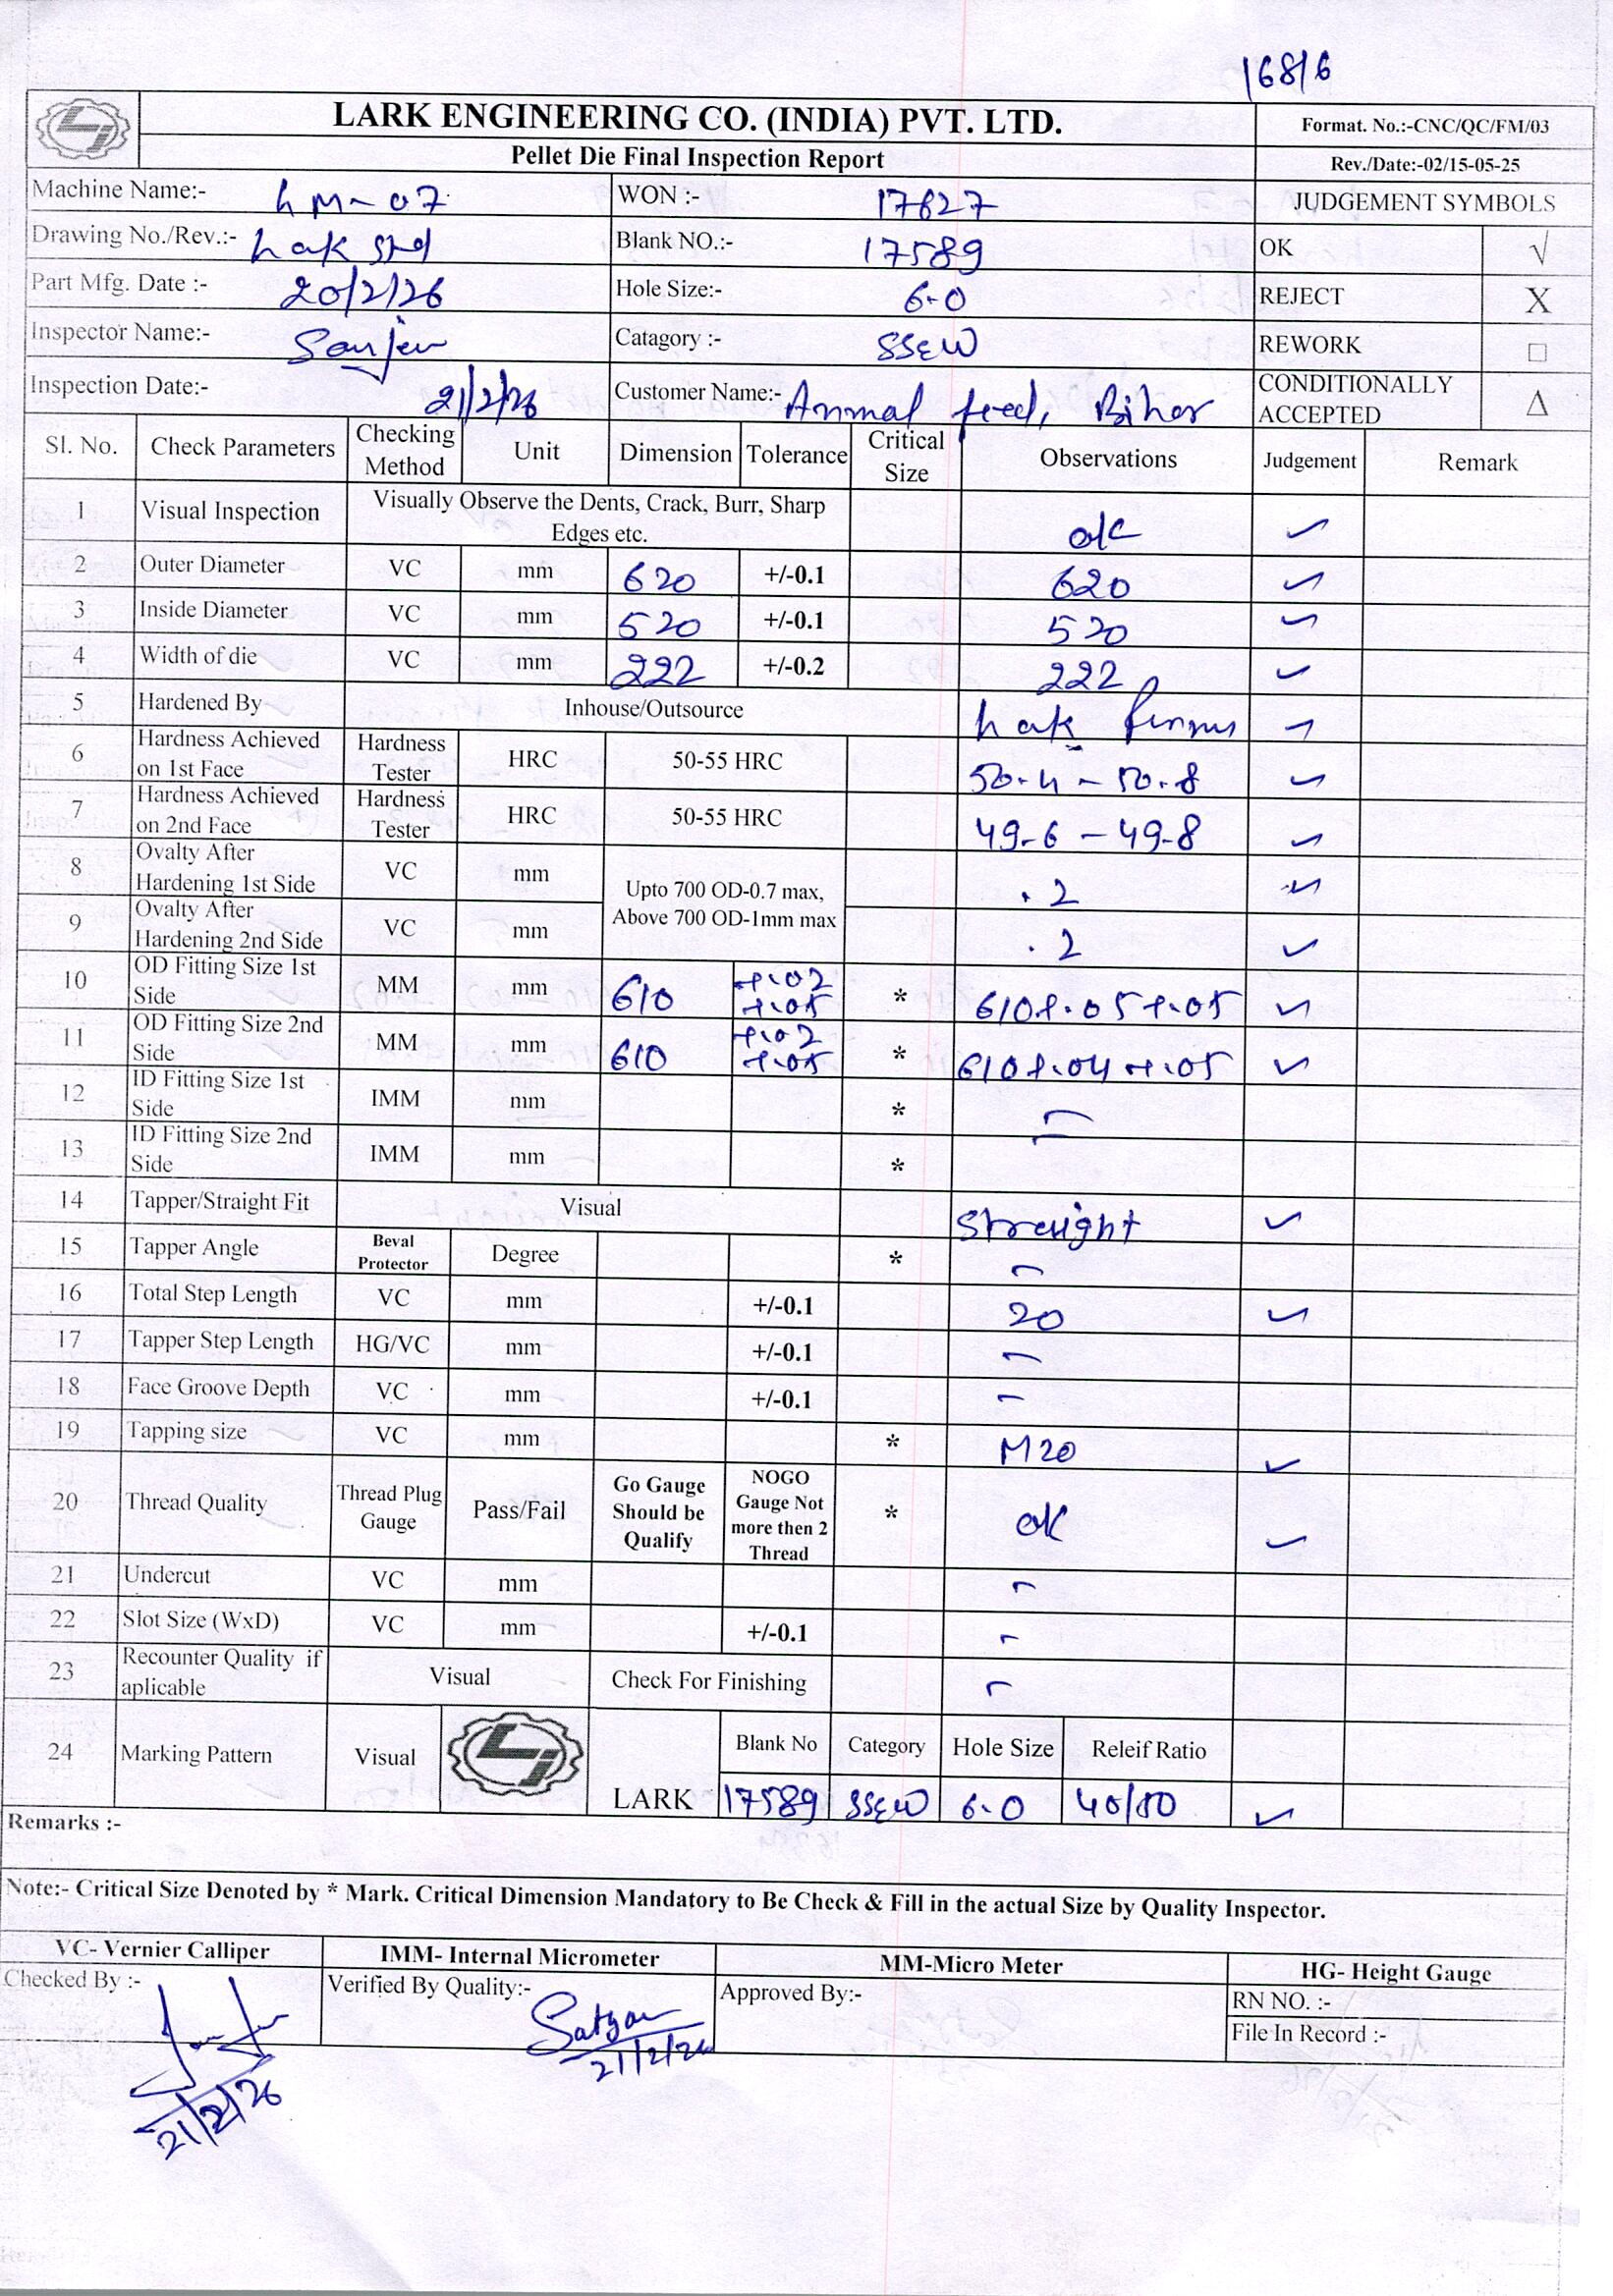 16816
LARK ENGINEERING CO. (INDIA) PVT. LTD.
Format. No.:-CNC/QC/FM/03
Pellet Die Final Inspection Report
Rev./Date:-02/15-05-25
Machine Name:- LM-07 WON :- 17627 JUDGEMENT SYMBOLS
Drawing No./Rev.:- Lark std Blank NO.:- 17589 OK √
Part Mfg. Date :- 20/2/26 Hole Size:- 6.0 REJECT X
Inspector Name:- Catagory :- SSEW REWORK □
Inspection Date:- 21/2/26 Customer Name:- Animal feed, Bihar CONDITIONALLY ACCEPTED Δ
Sl. No. Check Parameters Checking Method Unit Dimension Tolerance Critical Size Observations Judgement Remark
1 Visual Inspection Visually Observe the Dents, Crack, Burr, Sharp Edges etc. ok ✓
2 Outer Diameter VC mm 620 +/-0.1 620 ✓
3 Inside Diameter VC mm 520 +/-0.1 520 ✓
4 Width of die VC mm 222 +/-0.2 222 ✓
5 Hardened By Inhouse/Outsource Lark ✓
6 Hardness Achieved on 1st Face Hardness Tester HRC 50-55 HRC 50.4 - 50.8 ✓
7 Hardness Achieved on 2nd Face Hardness Tester HRC 50-55 HRC 49.6 - 49.8 ✓
8 Ovalty After Hardening 1st Side VC mm Upto 700 OD-0.7 max, Above 700 OD-1mm max .2 ✓
9 Ovalty After Hardening 2nd Side VC mm .2 ✓
10 OD Fitting Size 1st Side MM mm 610 +.02 +.05 * 610+.05+.05 ✓
11 OD Fitting Size 2nd Side MM mm 610 +.02 +.05 * 610+.04+.05 ✓
12 ID Fitting Size 1st Side IMM mm * -
13 ID Fitting Size 2nd Side IMM mm * -
14 Tapper/Straight Fit Visual Streight ✓
15 Tapper Angle Beval Protector Degree * -
16 Total Step Length VC mm +/-0.1 20 ✓
17 Tapper Step Length HG/VC mm +/-0.1 -
18 Face Groove Depth VC mm +/-0.1 -
19 Tapping size VC mm * M20 ✓
20 Thread Quality Thread Plug Gauge Pass/Fail Go Gauge Should be Qualify NOGO Gauge Not more then 2 Thread * ok ✓
21 Undercut VC mm -
22 Slot Size (WxD) VC mm +/-0.1 -
23 Recounter Quality if aplicable Visual Check For Finishing -
24 Marking Pattern Visual LARK Blank No Category Hole Size Releif Ratio
17589 SSEW 6.0 40/80 ✓
Remarks :-
Note:- Critical Size Denoted by * Mark. Critical Dimension Mandatory to Be Check & Fill in the actual Size by Quality Inspector.
VC- Vernier Calliper IMM- Internal Micrometer MM-Micro Meter HG- Height Gauge
Checked By :- Verified By Quality:- Approved By:- RN NO. :-
File In Record :-
Satyam
21/2/26
21/2/26